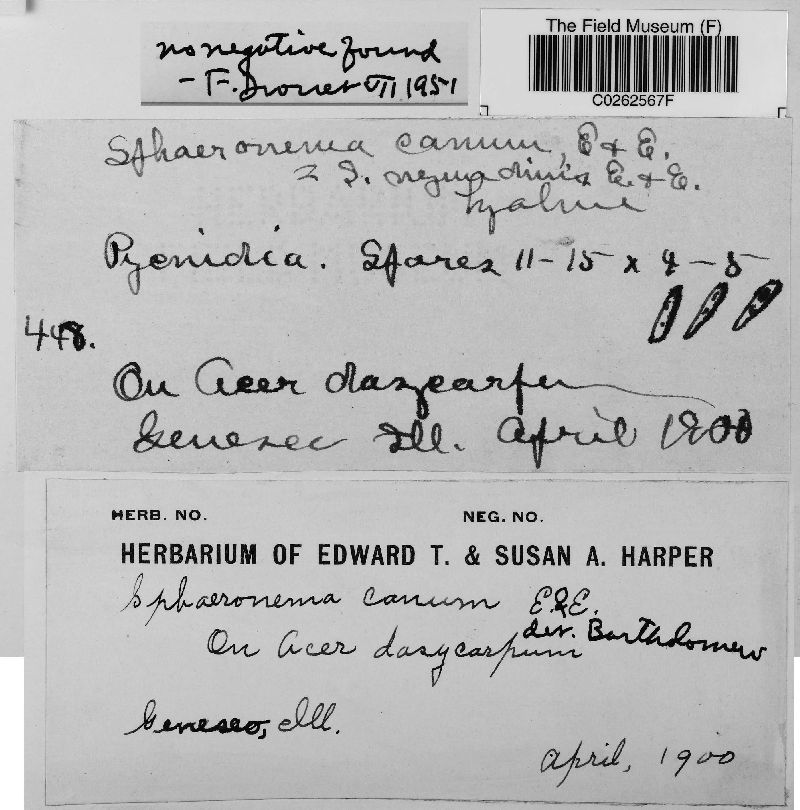 no negative found
- F. Drouet VII 1951
The Field Museum (F)
C0262567F
Sphaeronema canum, E & E.
= S. negundinis E. & E.
hyaline
Pycnidia. Spores 11-15 x 4-5
448.
On Acer dasycarpum
Geneseo Ill. April 1900
HERB. NO. NEG. NO.
HERBARIUM OF EDWARD T. & SUSAN A. HARPER
Sphaeronema canum E&E.
det. Bartholomew
On Acer dasycarpum
Geneseo, Ill.
April, 1900